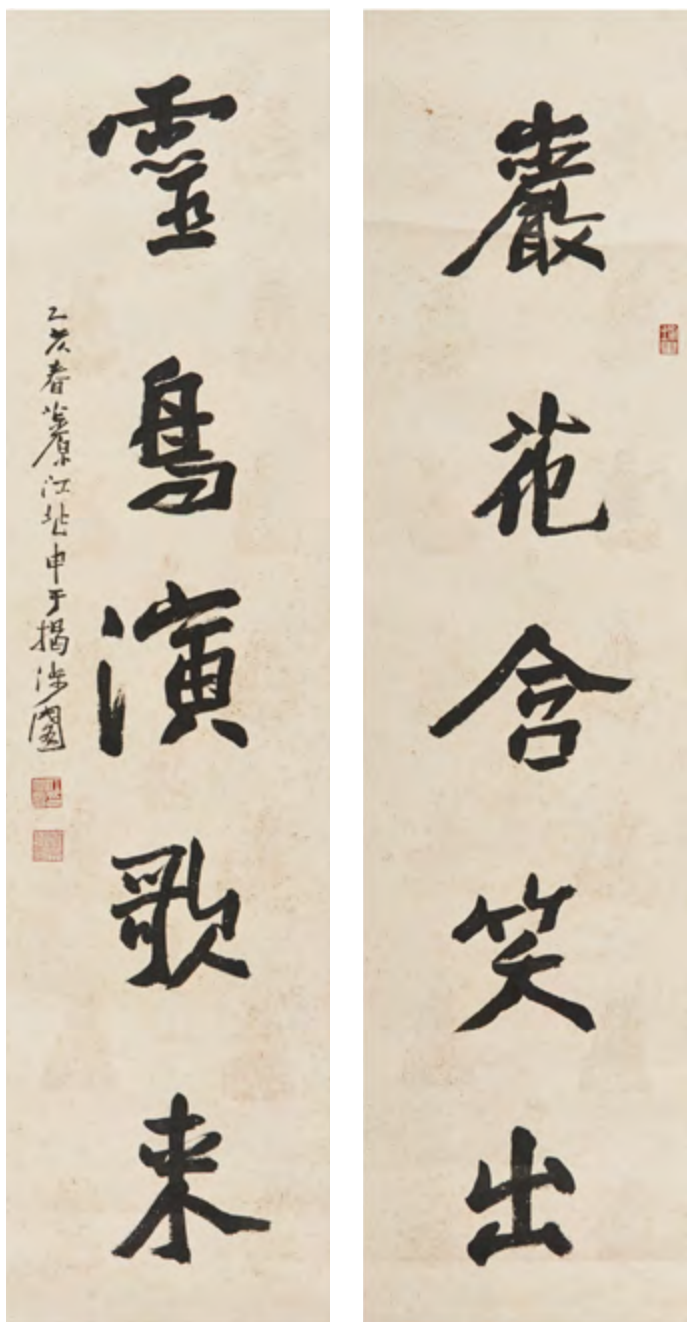 巖花含笑出
靈鳥演歌来
乙亥春茮原江兆申于揭涉園